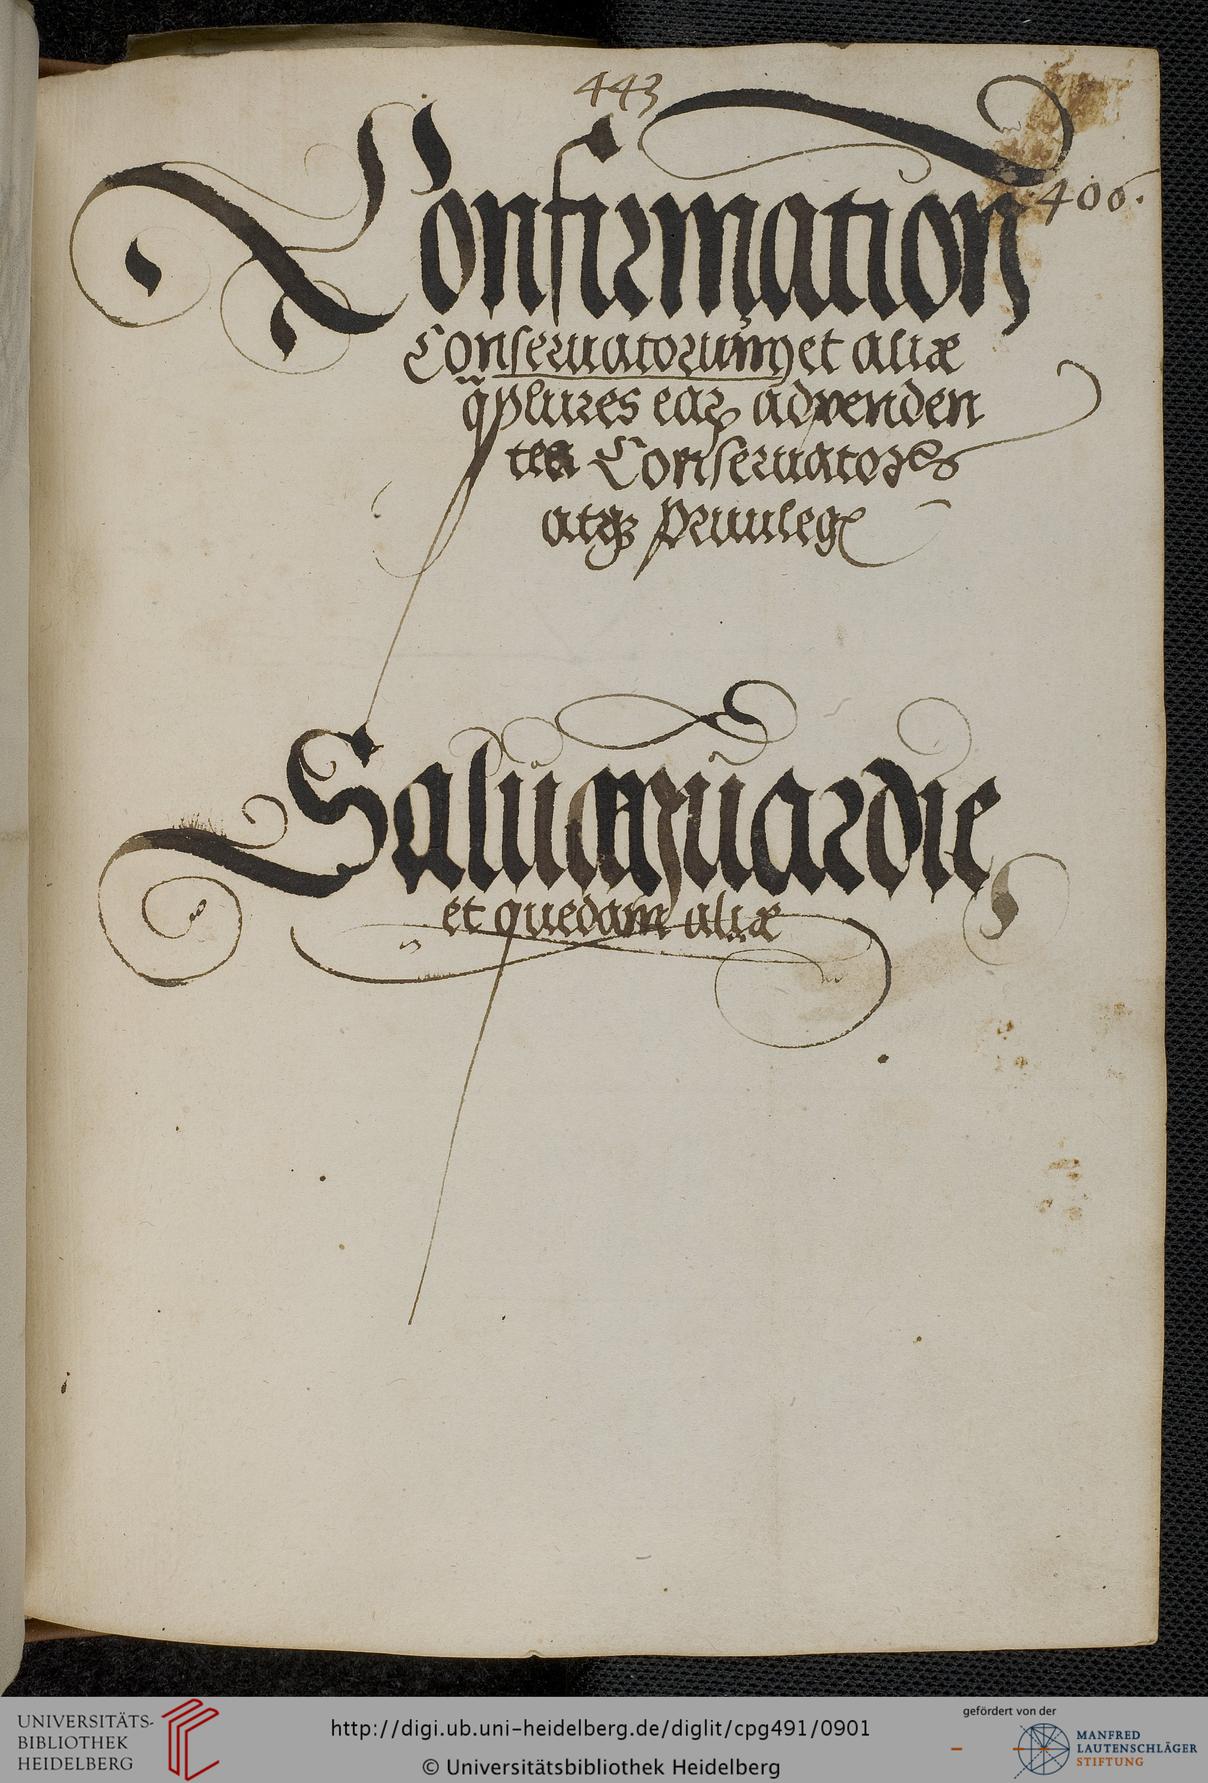 443
406.
Confirmation
Conseruatorium et aliæ
plures earꝝ
Conseruatores
atqꝫ
Saluaguardie
et quedam aliæ
UNIVERSITÄTS-
BIBLIOTHEK
HEIDELBERG
http://digi.ub.uni-heidelberg.de/diglit/cpg491/0901
© Universitätsbibliothek Heidelberg
gefördert von der
MANFRED
LAUTENSCHLÄGER
STIFTUNG